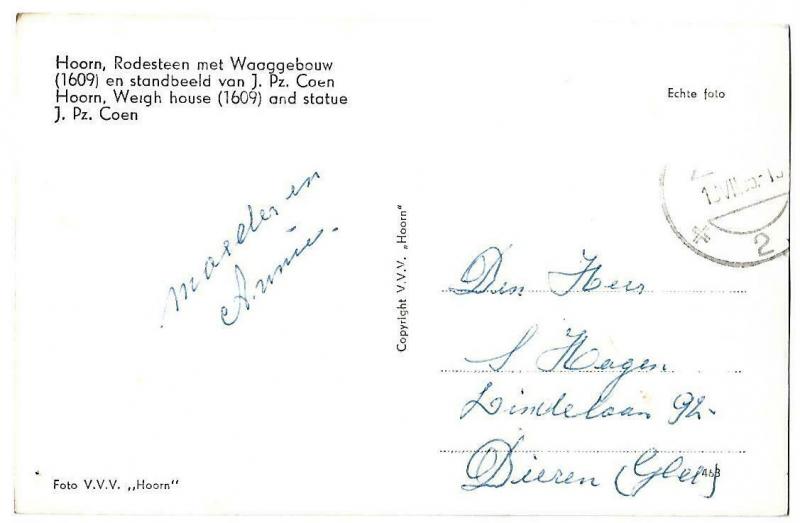 Hoorn, Rodesteen met Waaggebouw
(1609) en standbeeld van J. Pz. Coen
Hoorn, Weigh house (1609) and statue
J. Pz. Coen
Echte foto
moeder en
Annie.
Copyright V.V.V. „Hoorn"
2
Den Heer
S. Hagen
Lindelaan 92-
Dieren (Gld)
Foto V.V.V. „Hoorn"